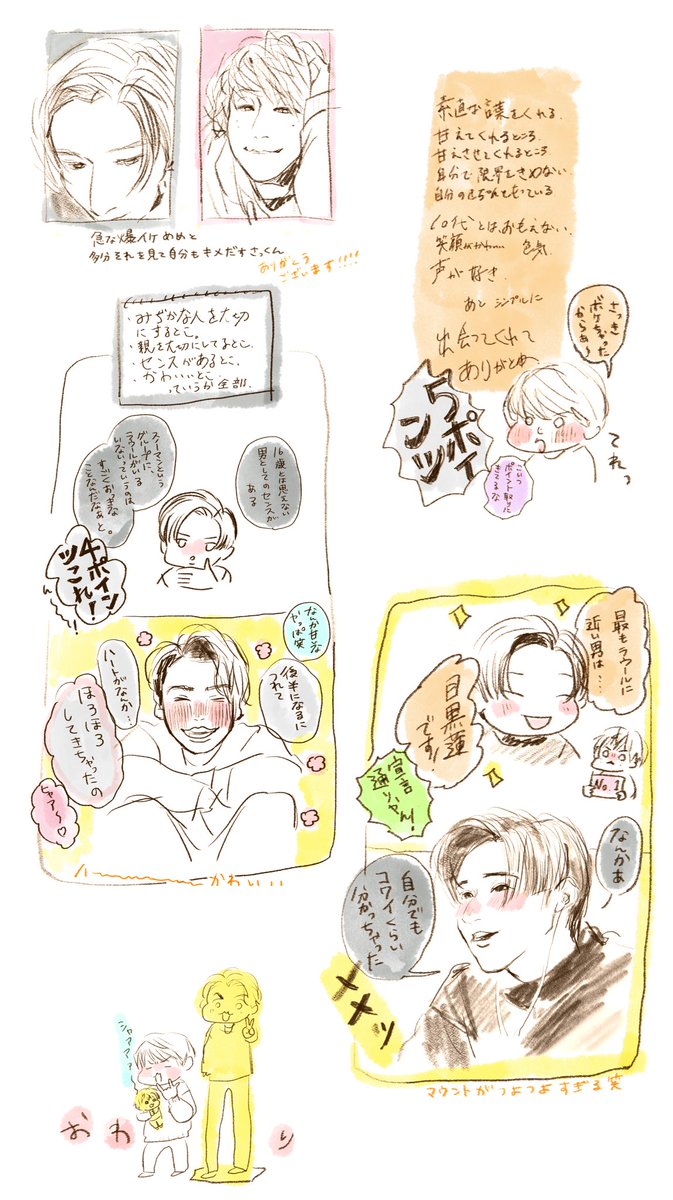 急な爆イケめめと
多分それを見て自分もキメだすさっくん
ありがとう
ございます!!!!
素直な言葉をくれる.
甘えてくれるところ.
甘えさせてくれるところ.
自分で限界をきめない
10代とは、おもえない.
笑顔がかわ… 色気
声が好き.
あと シンプルに
出会ってくれて
ありがとめ
さっき
ボケちゃった
からぁ〜
てれっ
5ポイ
ンツ
こいつ
ポイント取りに
きてるな
・みぢかな人を大切
にするとこ。
・親を大切にしてるとこ.
・センスがあるとこ.
・かわいいとこ
っていうか全部.
16歳とは思えない
男としてのセンスが
ある
スノーマンという
グループに、
ラウールがいる
いないっていうのは
すごくおっきな
ことなんだなぁと。
4ポイン
ツこれ!
ん〜!!
なんか甘そな
やっぱ笑
後半になるに
つれて
ハートがなんか…
ほろほろ
してきちゃったの
ヒャア〜♡
かわいい
最もラウールに
近い男は…
目黒蓮
です!
No.1
宣言
通りハァん!
なんかぁ
自分でも
コワイくらい
分かっちゃった
ナメッ
マウントがつよつよすぎる笑
シャアアア
おわり